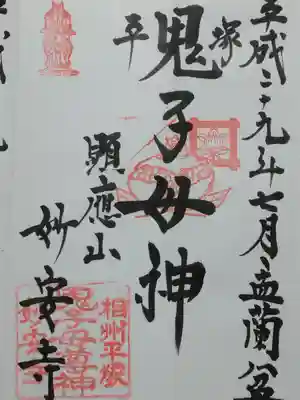 平成二十九年七月盂蘭盆
平塚
鬼子母神
顕應山
妙安寺
相州平塚
鬼子母尊神